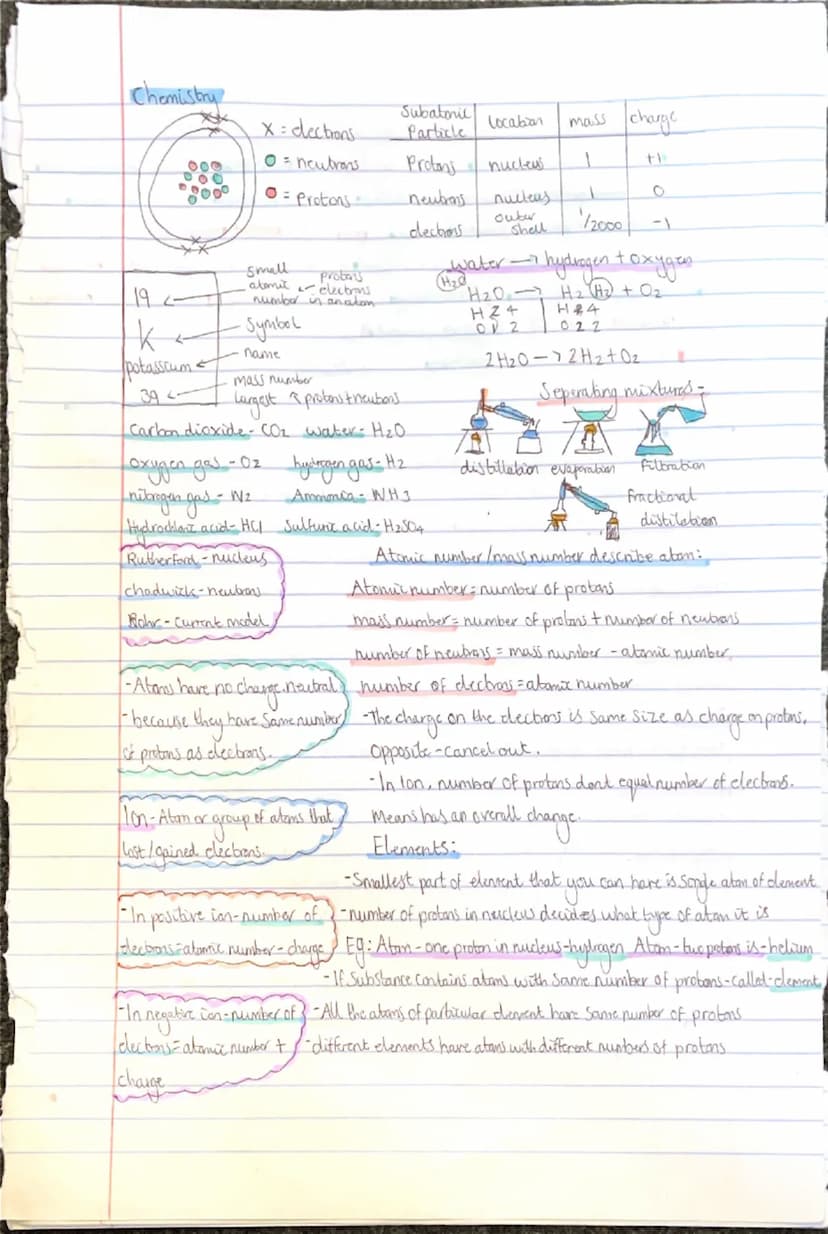 Chemistry
X = electrons
= neutrons
= Protons
Subatomic Particle location mass charge
Protons nucleus 1 +1
neutrons nucleus 1 0
electrons outer shell 1/2000 -1
19 ← small atomic number ← protons electrons in an atom
K ← Symbol
potassium ← name
39 ← mass number largest ↖ protons + neutrons
water → hydrogen + oxygen
H2O
H2O → H2 H2 + O2
2H2O → 2H2 + O2
Seperating mixtures -
distillation evaporation Filtration
Fractional distillation
Carbon dioxide - CO2 water - H2O
oxygen gas - O2 hydrogen gas - H2
nitrogen gas - N2 Ammonia - NH3
Hydrochloric acid - HCl Sulfuric acid - H2SO4
Rutherford - nucleus
chadwick - neutrons
Bohr - current model
Atomic number/mass number describe atom:
Atomic number = number of protons
mass number = number of protons + number of neutrons
number of neutrons = mass number - atomic number
number of electrons = atomic number
- Atoms have no charge, neutral
- because they have same number
of protons as electrons.
- The charge on the electrons is same size as charge on protons,
opposite - cancel out.
- In Ion, number of protons dont equal number of electrons.
Means has an overall charge.
Ion - Atom or group of atoms that
lost/gained electrons.
Elements:
- Smallest part of element that you can have is single atom of element
- In positive ion - number of
electrons = atomic number - charge
- number of protons in nucleus decides what type of atom it is
Eg: Atom - one proton in nucleus - hydrogen Atom - two protons is - helium
- If substance contains atoms with same number of protons - called - element
- In negative ion - number of
electrons = atomic number +
charge
- All the atoms of particular element have same number of protons
- different elements have atoms with different numbers of protons